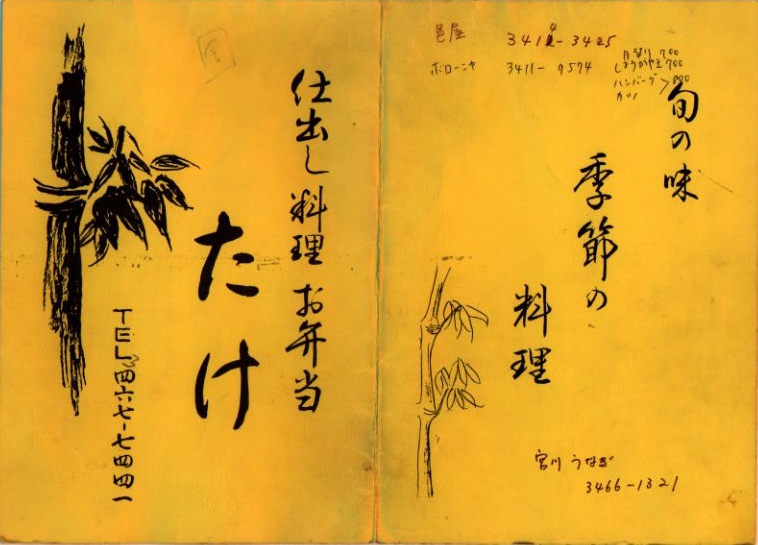 旬の味
季節の
料理
邑屋 3414-3425
ボローニャ 3411-9574
700
700
ハンバーグ
カツ
宮川 うなぎ
3466-1321
仕出し料理 お弁当
たけ
TEL四六七-七四四一